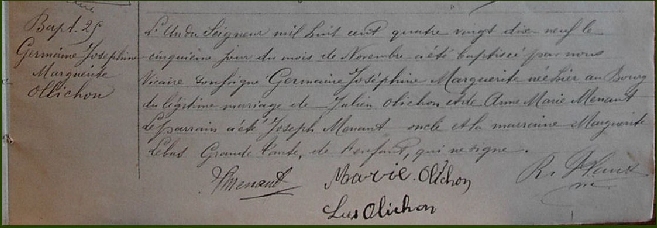 Bapt. 25
Germaine Joséphine
Marguerite
Olichon
L'An du Seigneur mil huit cent quatre vingt dix neuf le
cinquième jour du mois de Novembre a été baptisée par nous
Vicaire soussigné Germaine Joséphine Marguerite née hier au Bourg
du légitime mariage de Julien Olichon et de Anne Marie Menant
Le parrain a été Joseph Menant oncle et la marraine Marguerite
Lebas Grande tante, de l'enfant, qui ne signe.
J Menant Marie Olichon
Olichon